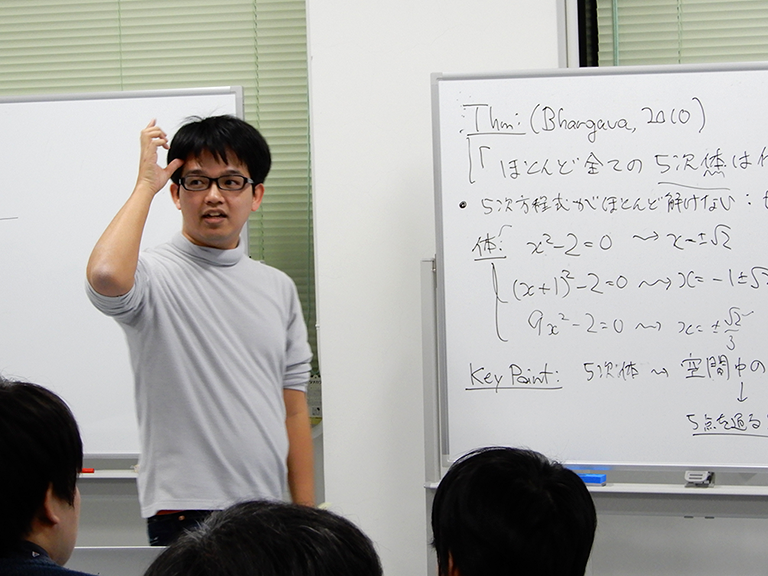 Thm: (Bhargava, 2010)
「ほとんど全ての 5次体は
• 5次方程式がほとんど解けない:
体: x²-2=0 ⇝ x=±√2
(x+1)²-2=0 ⇝ x=-1±√2
9x²-2=0 ⇝ x=±√2/3
Key Point: 5次体 ⇝ 空間中の
↓
5点を通る